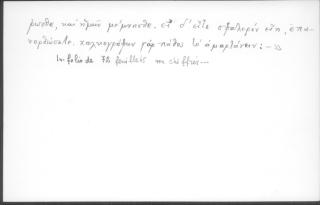 ρωσθε, καὶ ἡμῶν μέμνησθε. εἰ δ' εἴτε σφαλερὸν εἴη, ἐπα-
νορθώσατε, χαλκογράφων γὰρ πάθος τὸ ἁμαρτάνειν: — »
In folio de 72 feuillets non chiffrés —